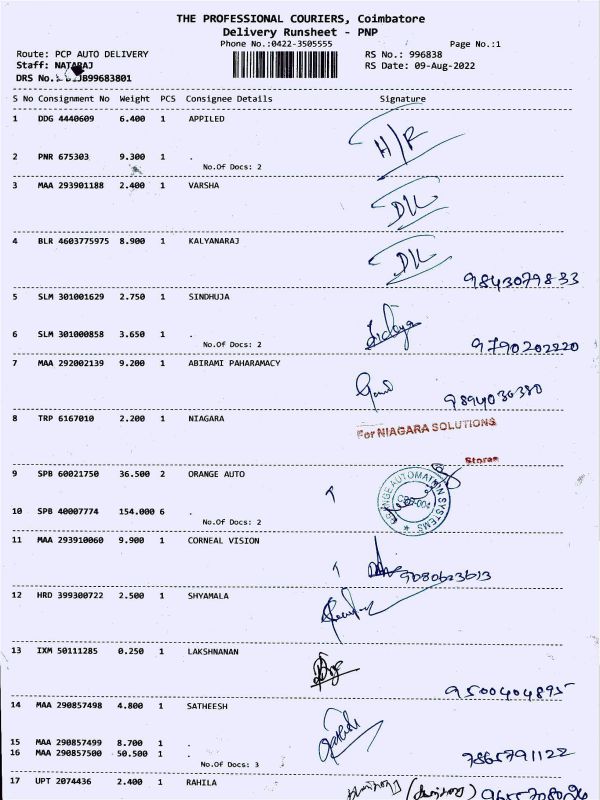 THE PROFESSIONAL COURIERS, Coimbatore
Delivery Runsheet - PNP
Phone No.:0422-3505555
Page No.:1
Route: PCP AUTO DELIVERY
RS No.: 996838
Staff: NATARAJ
RS Date: 09-Aug-2022
DRS No.: JB99683801
S No Consignment No Weight PCS Consignee Details Signature
1 DDG 4440609 6.400 1 APPILED
H/R
2 PNR 675303 9.300 1 .
No.Of Docs: 2
3 MAA 293901188 2.400 1 VARSHA
4 BLR 4603775975 8.900 1 KALYANARAJ
9843079833
5 SLM 301001629 2.750 1 SINDHUJA
6 SLM 301000858 3.650 1 .
No.Of Docs: 2
9790202220
7 MAA 292002139 9.200 1 ABIRAMI PAHARAMACY
9894030380
8 TRP 6167010 2.200 1 NIAGARA
For NIAGARA SOLUTIONS
Stores
9 SPB 60021750 36.500 2 ORANGE AUTO
ORANGE AUTOMATION SYSTEMS
10 SPB 40007774 154.000 6 .
No.Of Docs: 2
11 MAA 293910060 9.900 1 CORNEAL VISION
9080623613
12 HRD 399300722 2.500 1 SHYAMALA
13 IXM 50111285 0.250 1 LAKSHNANAN
9500404895
14 MAA 290857498 4.800 1 SATHEESH
15 MAA 290857499 8.700 1 .
16 MAA 290857500 50.500 1 .
No.Of Docs: 3
7865791122
17 UPT 2074436 2.400 1 RAHILA